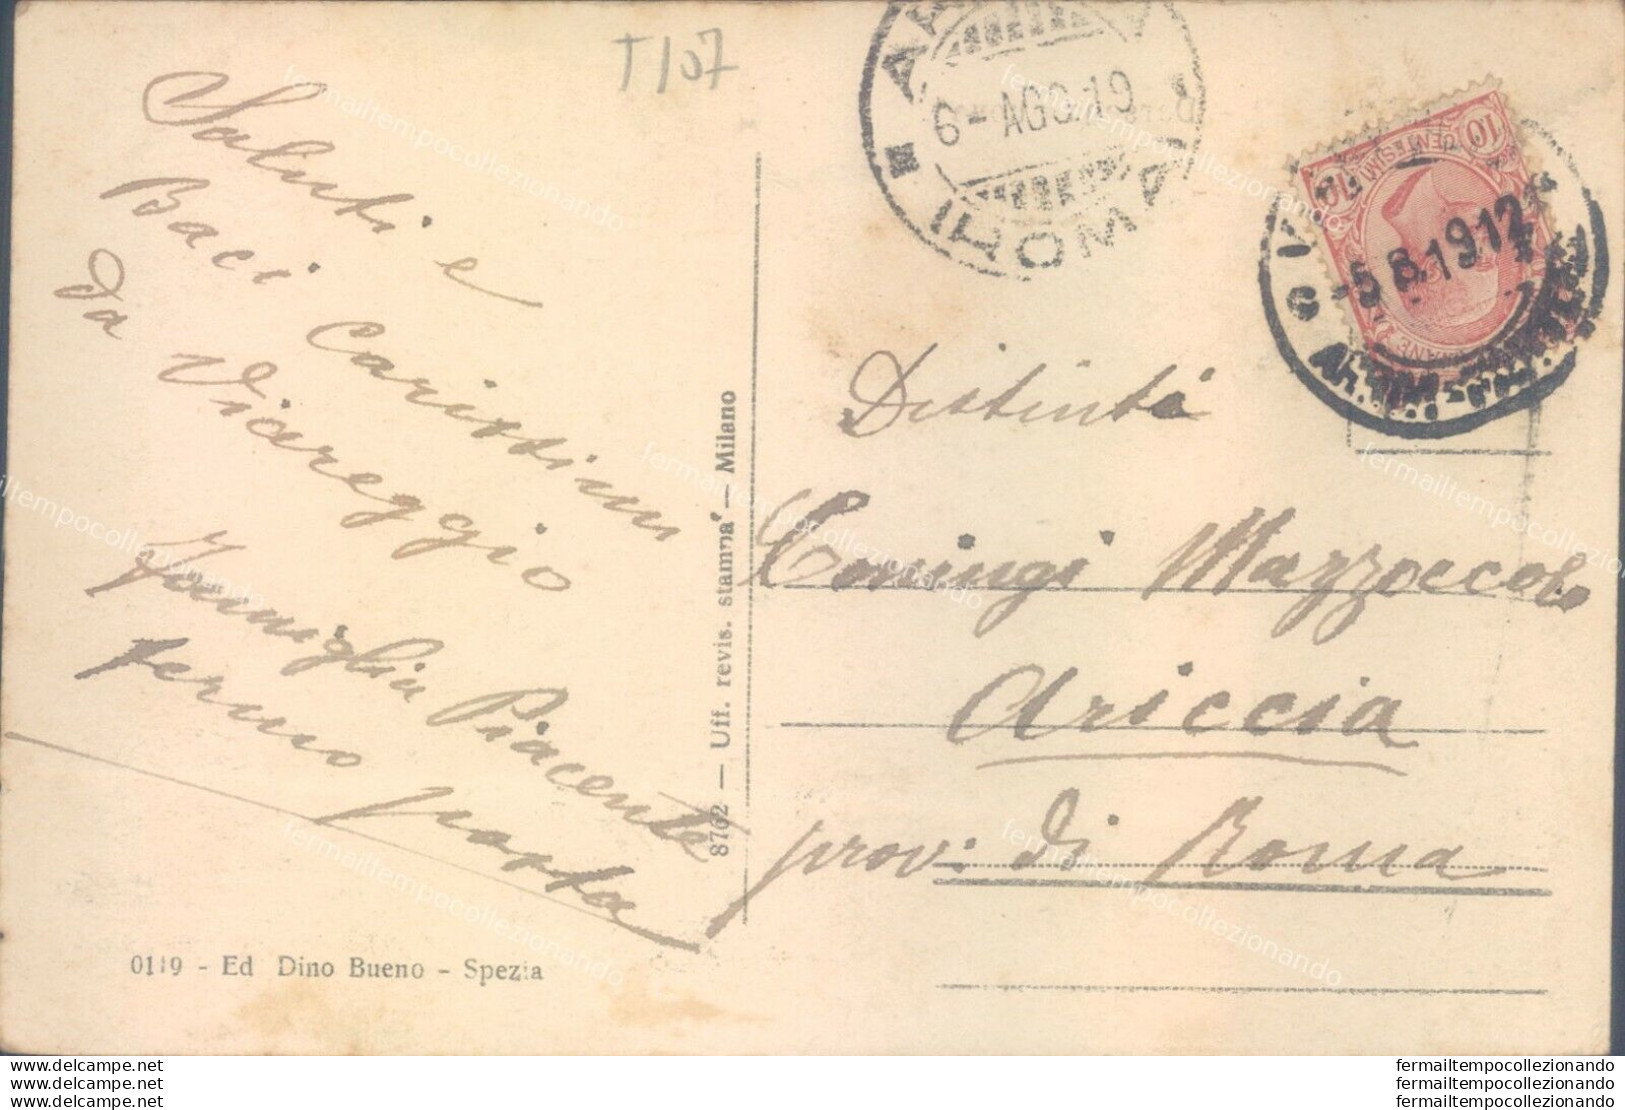 T107
Saluti e
Baci Carissimi
da Viareggio
Famiglia Piacente
fermo posta
0119 - Ed Dino Bueno - Spezia
8762 — Uff. revis. stampa — Milano
6 - AGO.19
ROMA
10
CENTESIMI
10
-5.8.19 12
Distinti
Coningi Mazzoccolo
Ariccia
prov. di Roma
fermailtempocollezionando
www.delcampe.net
www.delcampe.net
www.delcampe.net
fermailtempocollezionando
fermailtempocollezionando
fermailtempocollezionando